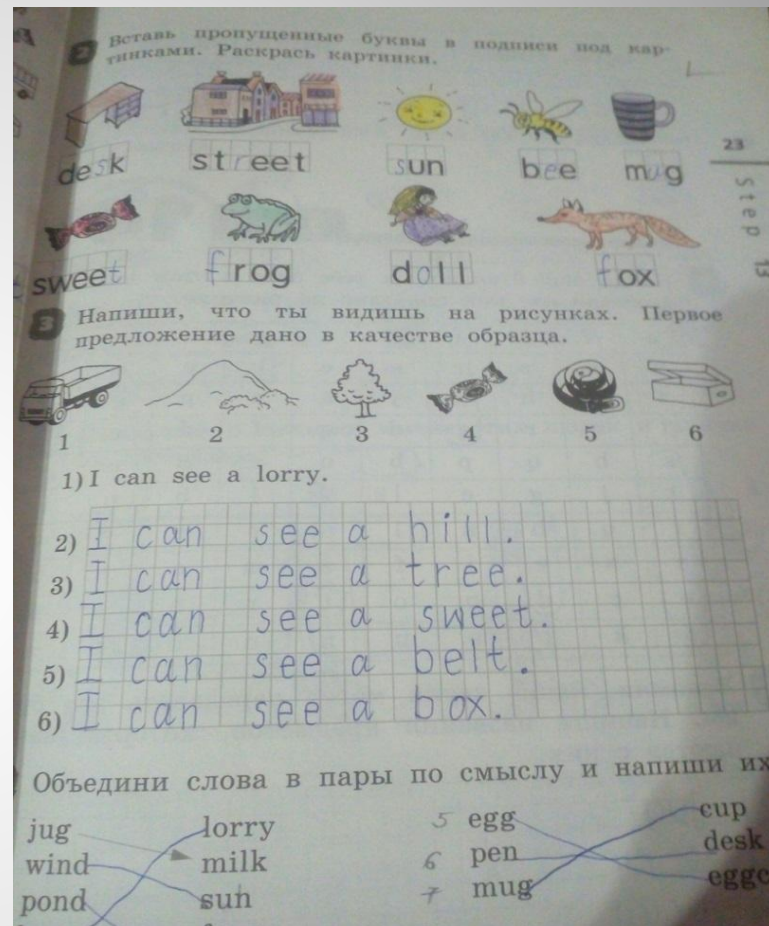 2 Вставь пропущенные буквы в подписи под кар-
тинками. Раскрась картинки.
desk street sun bee mug
23
Step 13
sweet frog doll fox
3 Напиши, что ты видишь на рисунках. Первое
предложение дано в качестве образца.
1 2 3 4 5 6
1) I can see a lorry.
2) I can see a hill.
3) I can see a tree.
4) I can see a sweet.
5) I can see a belt.
6) I can see a box.
Объедини слова в пары по смыслу и напиши их
jug lorry 5 egg cup
wind milk 6 pen desk
pond sun 7 mug eggc